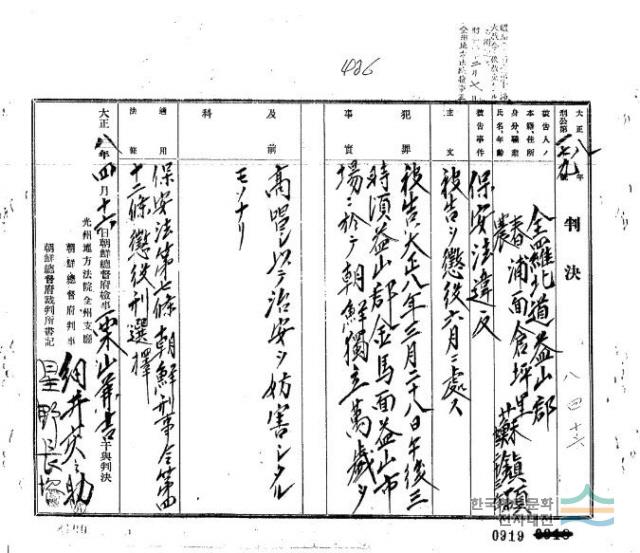 大正八年
刑公第一七九號
判決
被告人ノ
本籍、住所
身分、職業
氏名、年齡
全羅北道益山郡
春浦面倉坪里
農
蘇鎭碩
八四十三
被告事件
保安法違反
主文
被告ヲ懲役六月ニ處ス
犯罪
事實
被告ハ大正八年三月二十八日午後三
時頃益山郡金馬面益山市
場ニ於テ朝鮮獨立萬歲ヲ
高唱シ以テ治安ヲ妨害シタル
モノナリ
及前
科
適用
法條
保安法第七條朝鮮刑事令第四
十二條懲役刑選擇
大正八年四月十六日朝鮮總督府檢事栗山茂吉干與判決
光州地方法院全州支廳
朝鮮總督府判事 細井英之助
朝鮮總督府裁判所書記 星野長
426
한국 문화
전자대전
0919